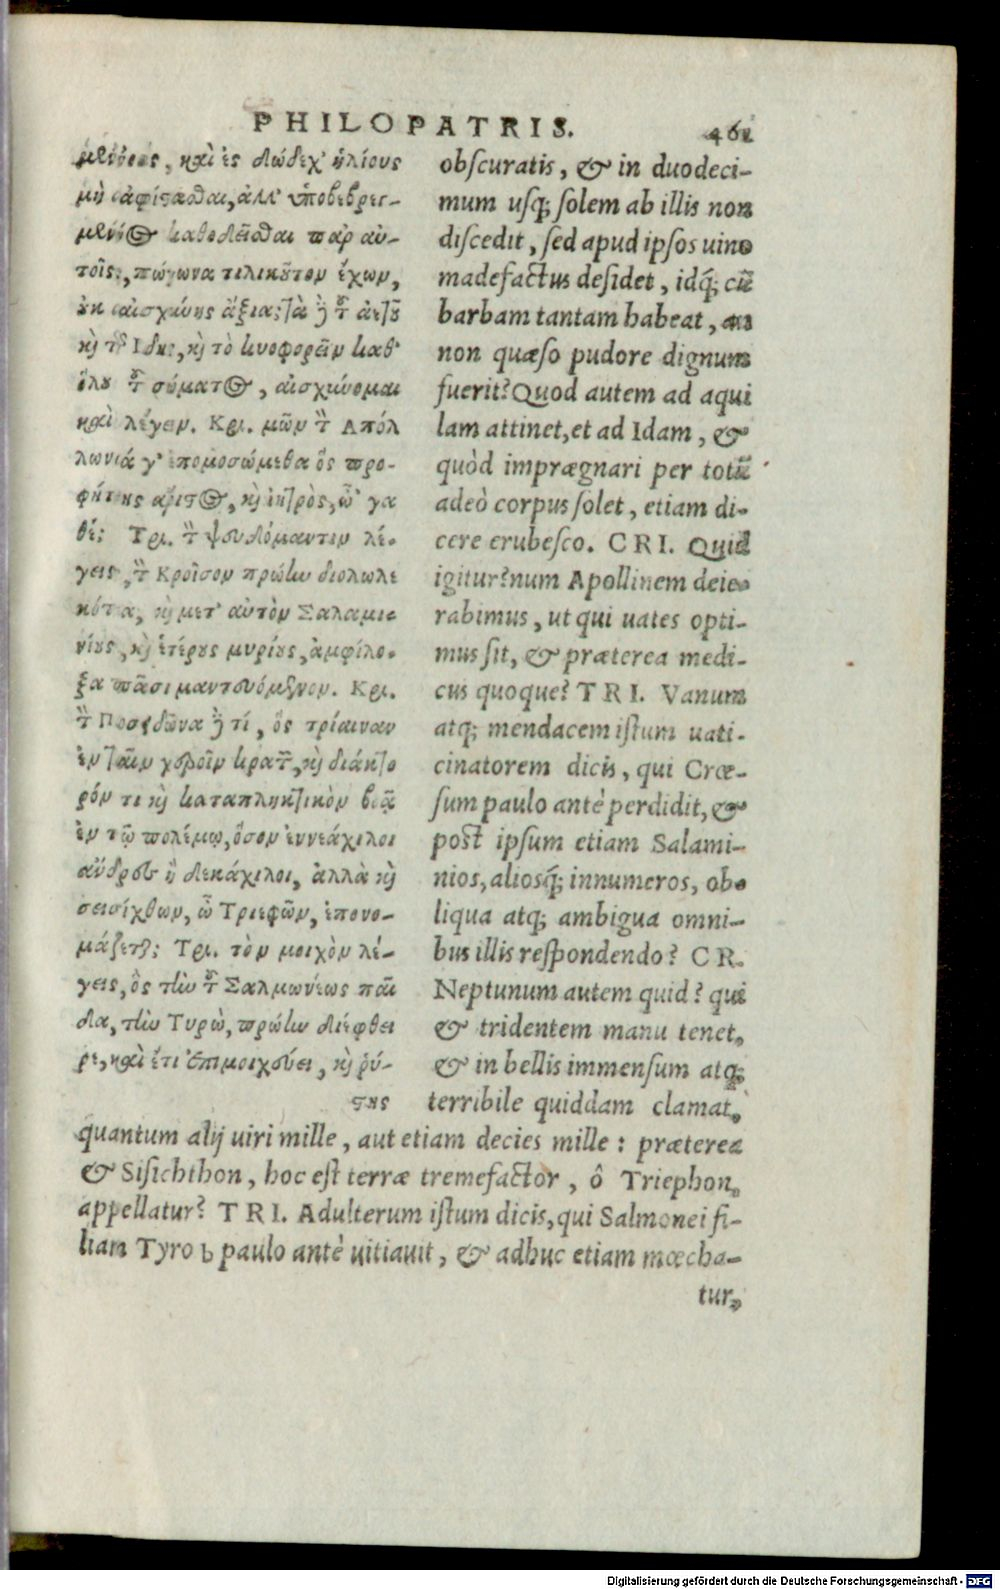 PHILOPATRIS. 461
μένους, καὶ ἐς δώδεχ' ἡλίους
μὴ ἀφίστασθαι, ἀλλ' ὑποβεβρεγ-
μένος καθεδεῖσθαι παρ' αὐ-
τοῖς, πώγωνα τηλικοῦτον ἔχων,
οὐκ αἰσχύνης ἄξια; τὰ δὲ τοῦ ἀετοῦ
καὶ τῆς Ἴδης, καὶ τὸ κυοφορεῖν καθ'
ὅλου τοῦ σώματος, αἰσχύνομαι
καὶ λέγειν. Κρι. μῶν τὸν Ἀπόλ
λωνιά γ' ἐπομοσώμεθα ὃς προ-
φήτης ἄριστος, καὶ ἰητρὸς, ὦ' γα
θέ; Τρι. τὸν ψευδόμαντιν λέ-
γεις, τὸν Κροῖσον πρώην διολωλε
κότα, καὶ μετ' αὐτὸν Σαλαμι-
νίους, καὶ ἑτέρους μυρίους, ἀμφίλο-
ξα πᾶσι μαντευόμενον. Κρι.
τὸν Ποσειδῶνα δὲ τί, ὃς τρίαιναν
ἐν ταῖν χεροῖν κρατεῖ, καὶ διάκτο
ρόν τι καὶ καταπληκτικὸν βοᾷ
ἐν τῷ πολέμῳ, ὅσον ἐννεάχιλοι
ἄνδρες ἢ δεκάχιλοι, ἀλλὰ καὶ
σεισίχθων, ὦ Τριεφῶν, ἐπονο-
μάζεται; Τρι. τὸν μοιχὸν λέ-
γεις, ὃς τὴν τοῦ Σαλμωνέως παῖ
δα, τὴν Τυρὼ, πρώην διέφθει
ρε, καὶ ἔτι ἐπιμοιχεύει, καὶ ῥύ-
στης
obscuratis, & in duodeci-
mum usq; solem ab illis non
discedit, sed apud ipsos uino
madefactus desidet, idq́; cũ
barbam tantam habeat, an
non quæso pudore dignum
fuerit? Quod autem ad aqui
lam attinet, et ad Idam, &
quòd imprægnari per totũ
adeò corpus solet, etiam di-
cere erubesco. CRI. Quid
igitur? num Apollinem deie-
rabimus, ut qui uates opti-
mus sit, & præterea medi-
cus quoque? TRI. Vanum
atq; mendacem istum uati-
cinatorem dicis, qui Crœ-
sum paulo antè perdidit, &
post ipsum etiam Salami-
nios, aliosq́; innumeros, ob-
liqua atq; ambigua omni-
bus illis respondendo? CR.
Neptunum autem quid? qui
& tridentem manu tenet,
& in bellis immensum atq;
terribile quiddam clamat,
quantum alij uiri mille, aut etiam decies mille: præterea
& Sisichthon, hoc est terræ tremefactor, ô Triephon,
appellatur? TRI. Adulterum istum dicis, qui Salmonei fi-
liam Tyro b paulo antè uitiauit, & adhuc etiam mœcha-
tur,
Digitalisierung gefördert durch die Deutsche Forschungsgemeinschaft - DFG